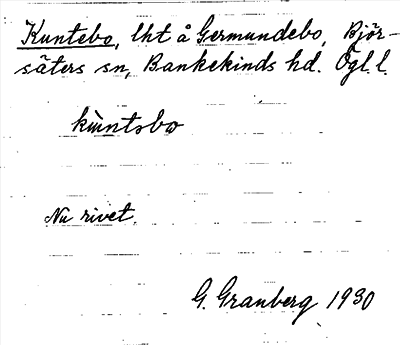 Kuntebo, lht å Germundebo, Björ-
säters sn, Bankekinds hd. Ögl. l.
kùntsbo
Nu rivet.
G. Granberg 1930